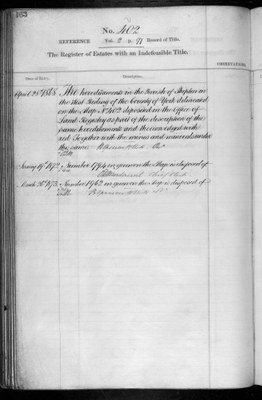 163
No. 402
REFERENCE Vol. 2 p. 77 Record of Title.
The Register of Estates with an Indefeasible Title.
Date of Entry. Description. OBSERVATIONS.
April 28th 1868 The hereditaments in the Parish of
the West Riding of the County of York delineated
on the Map No. 402 deposited in the Office of
Land Registry as part of the description of the
same hereditaments and thereon edged with
red Together with the mines and minerals under
the same
1872 Number 1794 in geneva the Map is disposed of
March 26th 1873 Number 1962 in geneva the Map is disposed of